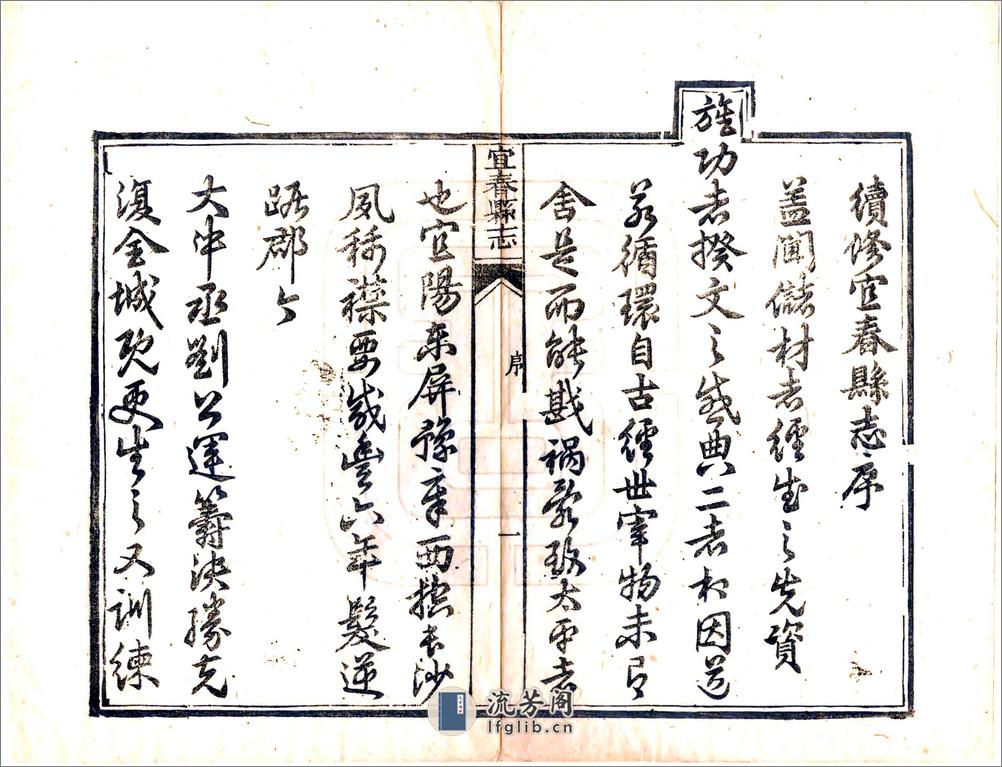 續修宜春縣志序
蓋聞儲材者經武之先資
旌功者揆文之盛典二者相因道
若循環自古經世宰物未有
舍是而能戡禍亂致太平者
宜春縣志
序
一
也宜陽東屏豫章西控長沙
夙稱襟要咸豐六年髮逆
踞郡今
大中丞劉公運籌決勝克
復全城既更生之又訓練
流芳阁
lfglib.cn